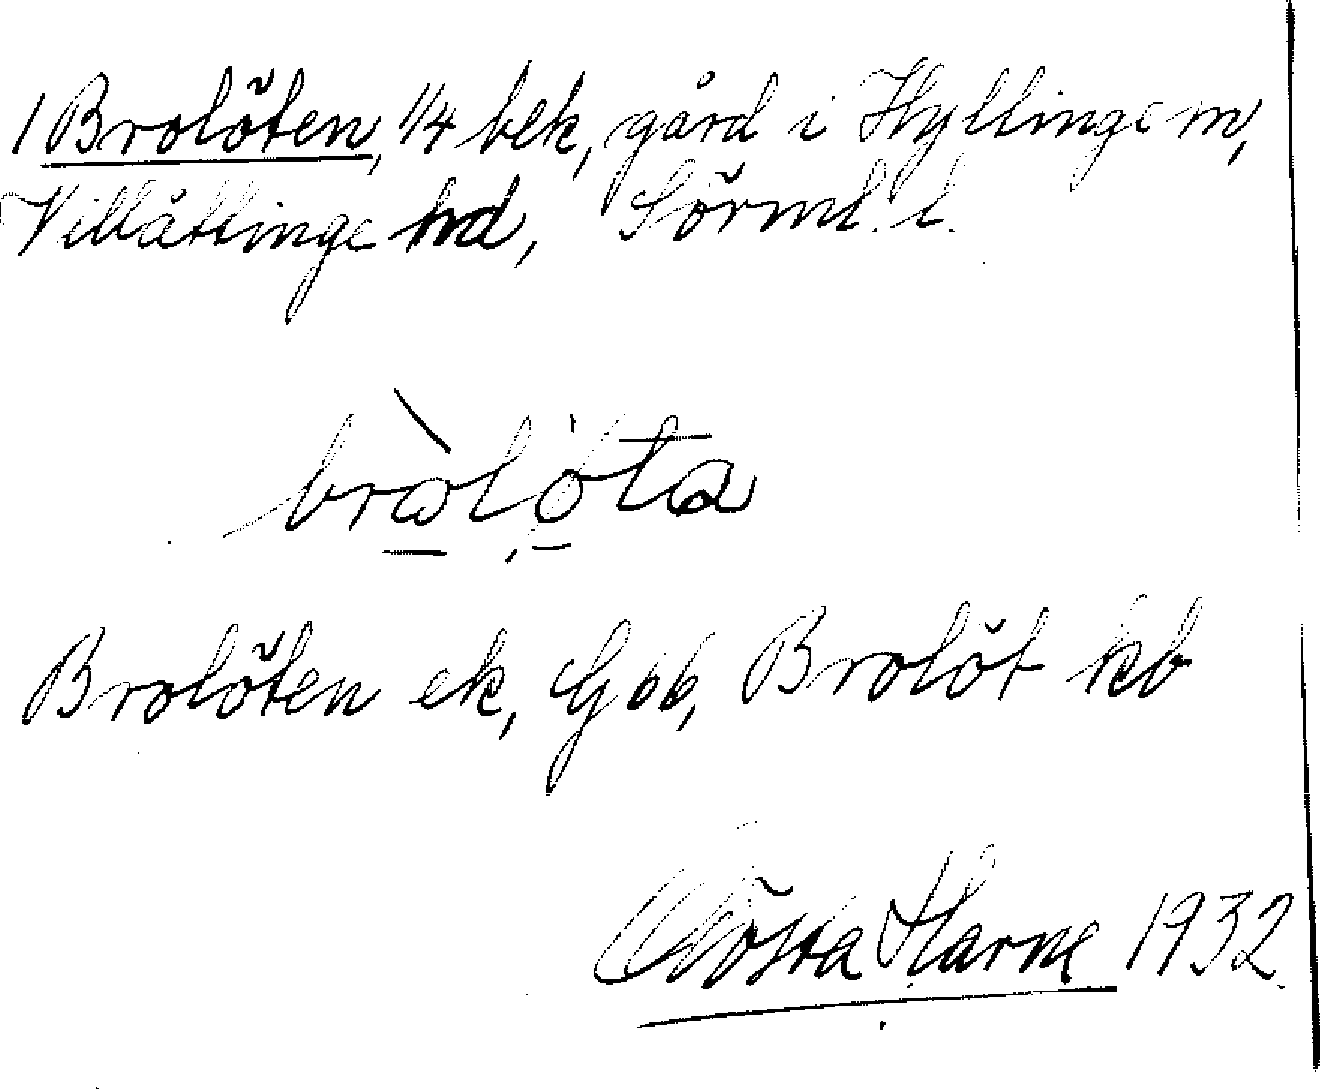 1 Brolöten, 1/4 blk, gård i Hyltinge sn,
Villåttinge hd, Sörml. l.
bròlöta
Brolöten ek, G bb, Brolöt kb
Gösta Harne 1932.